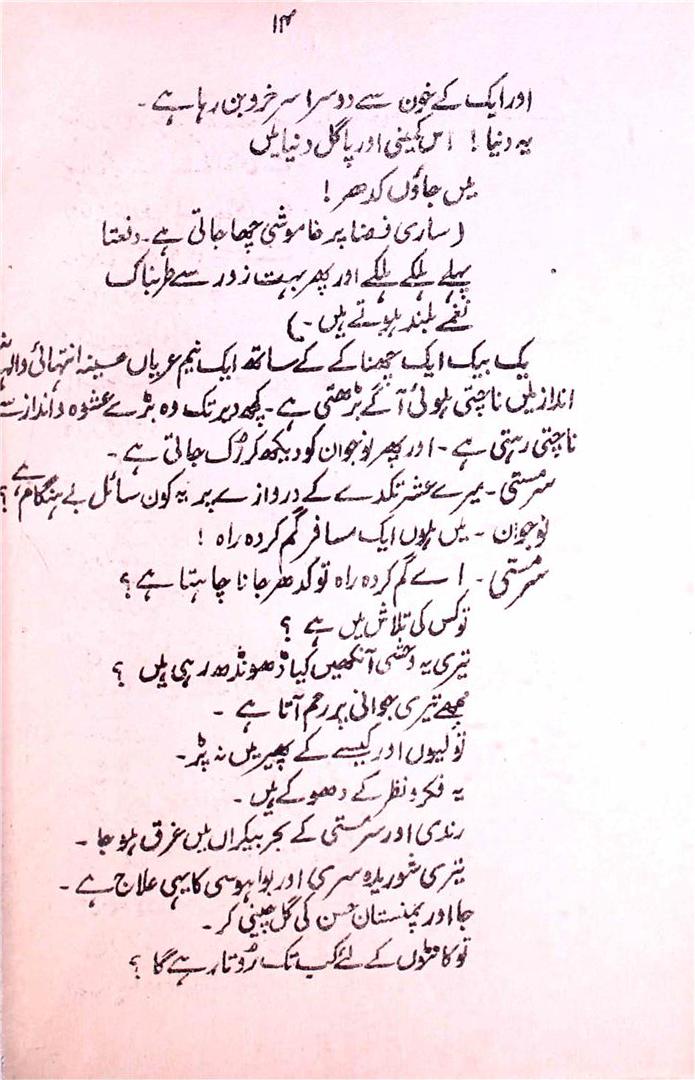 ۱۴
اور ایک کے خون سے دوسرا سرخرو بن رہا ہے ۔
یہ دنیا ! اس کمینی اور پاگل دنیا میں
میں جاؤں کدھر !
( ساری فضا پر خاموشی چھا جاتی ہے ۔ دفعتا
پہلے ہلکے ہلکے اور پھر بہت زور سے طربناک
نغمے بلند ہوتے ہیں ۔ )
یک بیک ایک چھناکے کے ساتھ ایک نیم عریاں حسینہ انتہائی والہانہ
انداز میں ناچتی ہوئی آگے بڑھتی ہے ۔ کچھ دیر تک وہ بڑے عشوہ و انداز سے
ناچتی رہتی ہے ۔ اور پھر نوجوان کو دیکھ کر رُک جاتی ہے ۔
سرمستی ۔ میرے عشرتکدے کے دروازے پر یہ کون سائل بے ہنگام ہے ؟
نوجوان ۔ میں ہوں ایک مسافر گم کردہ راہ !
سرمستی ۔ اے گم کردہ راہ تو کدھر جانا چاہتا ہے ؟
تو کس کی تلاش میں ہے ؟
تیری یہ وحشی آنکھیں کیا ڈھونڈھ رہی ہیں ؟
مجھے تیری جوانی پر رحم آتا ہے ۔
تو کیوں اور کیسے کے پھیر میں نہ پڑ ۔
یہ فکر و نظر کے دھوکے ہیں ۔
رندی اور سرمستی کے بحر بیکراں میں غرق ہو جا ۔
تیری شوریدہ سری اور بوالہوسی کا یہی علاج ہے ۔
جا اور چمنستان حسن کی گل چینی کر ۔
تو کانٹوں کے لئے کب تک رُوتا رہے گا ؟